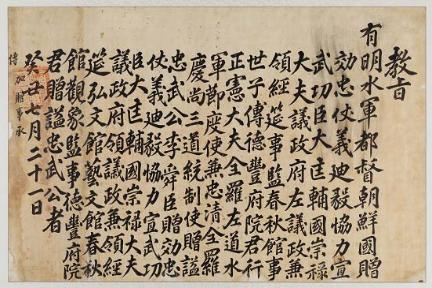 教旨
有明水軍都督朝鮮國贈
効忠仗義迪毅協力宣
武功臣大匡輔國崇祿
大夫議政府左議政兼
領經筵事監春秋館事
世子傅德豊府院君行
正憲大夫全羅左道水
軍節度使兼忠清全羅
慶尚三道統制使贈諡
忠武公李舜臣贈効忠
仗義迪毅協力宣武功
臣大匡輔國崇祿大夫
議政府領議政兼領經
筵弘文館藝文館春秋
館觀象監事德豊府院
君贈諡忠武公者
癸丑七月二十一日
加贈事承
傳